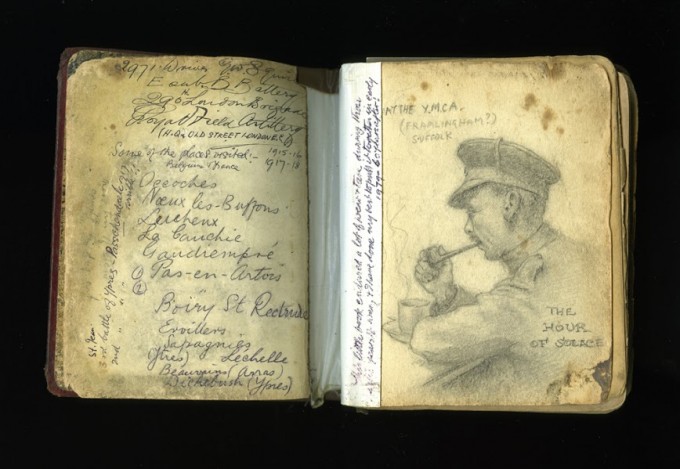 2971 Driver Geo S
E sub D Battery
London Brigade
Royal Field Artillery
(H.Q. OLD STREET LONDON E.C.)
Some of the places visited:- 1915-16
Belgium & France 1917-18
Ogeoches
Noeux les-Buffons
Lucheux
La Cauchie
Gaudiempré
Pas-en-Artois
Boiry St Rectrude
Ervillers
Sapagnies
(Ypres) Lechelle
Beaurains (Arras)
Dickebush (Ypres)
3rd battle of Ypres - Passchendaele
2nd " " "
This little book endured a lot of wear & tear during those
years of war, & I have done my best to put it together in early
1979 - 60 years after!
AT THE Y.M.C.A.
(FRAMLINGHAM?)
SUFFOLK
THE
HOUR
OF SOLACE